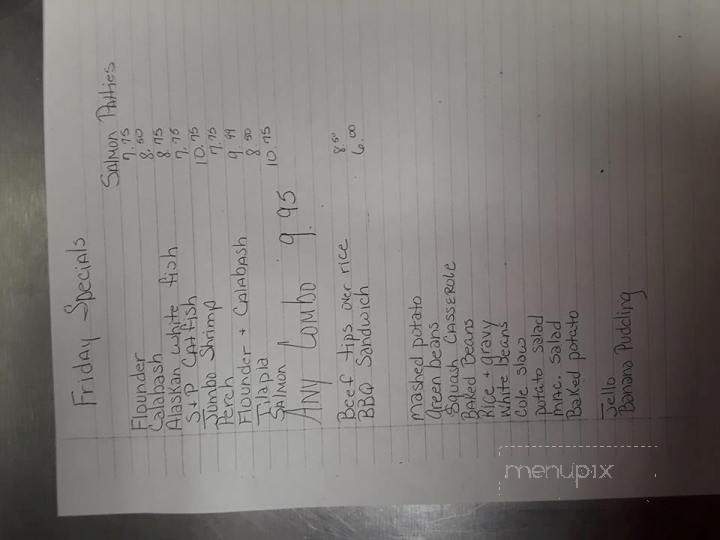 Friday Specials
Salmon Patties
Flounder 7.75
Calabash 8.50
Alaskan white fish 8.75
S+P Catfish 7.75
Jumbo Shrimp 10.75
Perch 7.75
Flounder + Calabash 9.99
Tilapia 8.50
Salmon 10.75
Any Combo 9.95
Beef tips over rice 8.50
BBQ Sandwich 6.00
Mashed potato
Green beans
Squash Casserole
Baked Beans
Rice + gravy
White beans
Cole slaw
potato salad
mac. salad
Baked potato
Jello
Banana Pudding
menupix